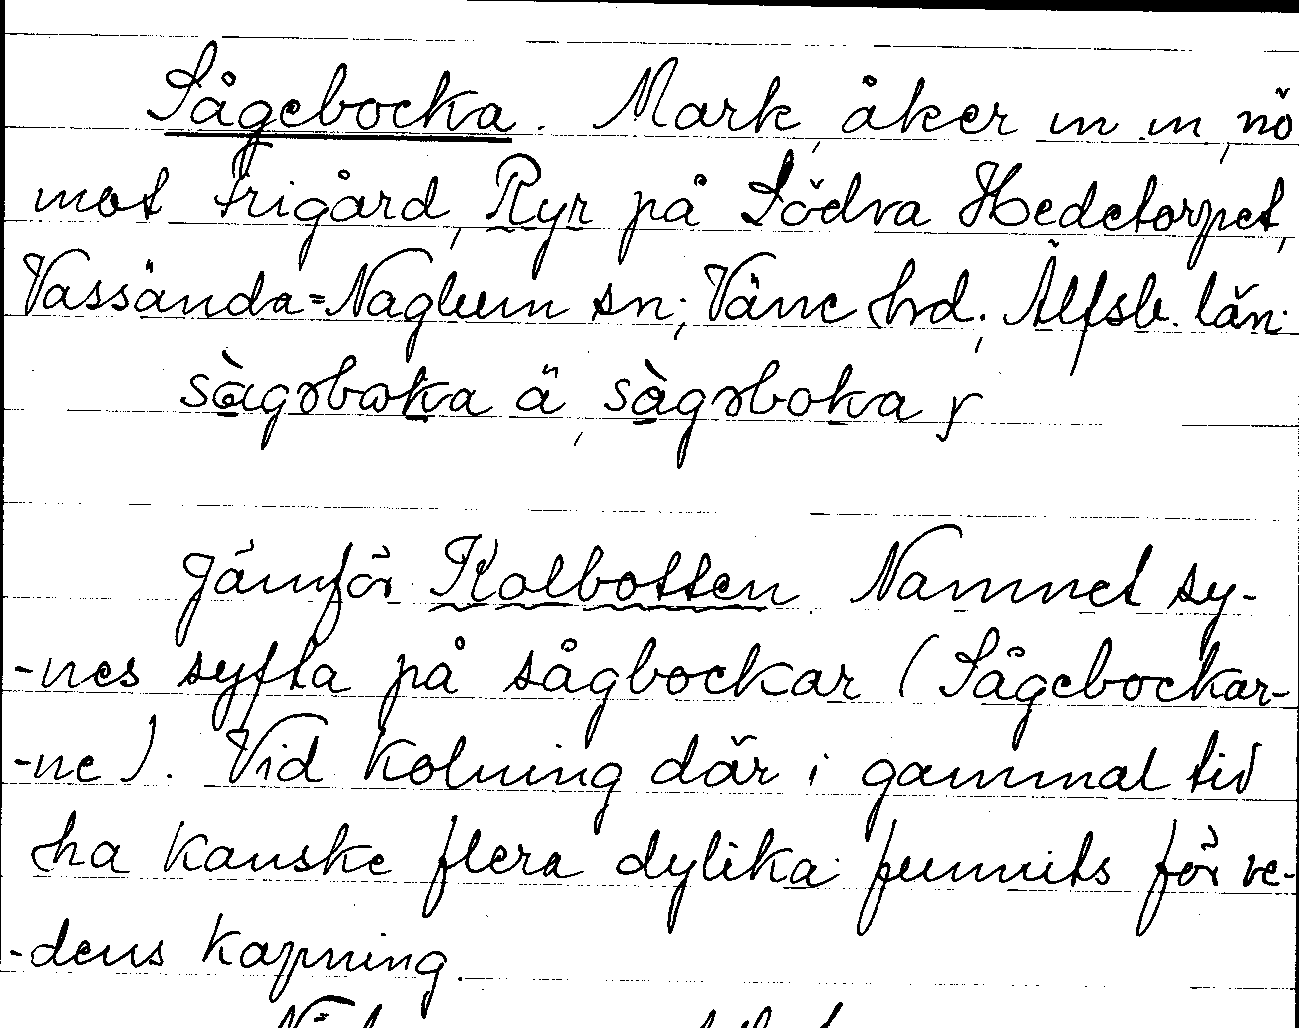 Sågebocka. Mark, åker m m, nö
mot Frigård, Ryr på Södra Hedetorpet,
Vassända=Naglum sn; Väne hrd; Älfsb. län.
sàgəboka ä, sàgəboka f
Jämför Kolbotten. Namnet sy-
-nes syfta på sågbockar (Sågebockar-
-ne). Vid kolning där i gammal tid
ha kanske flera dylika funnits för ve-
-dens kapning.